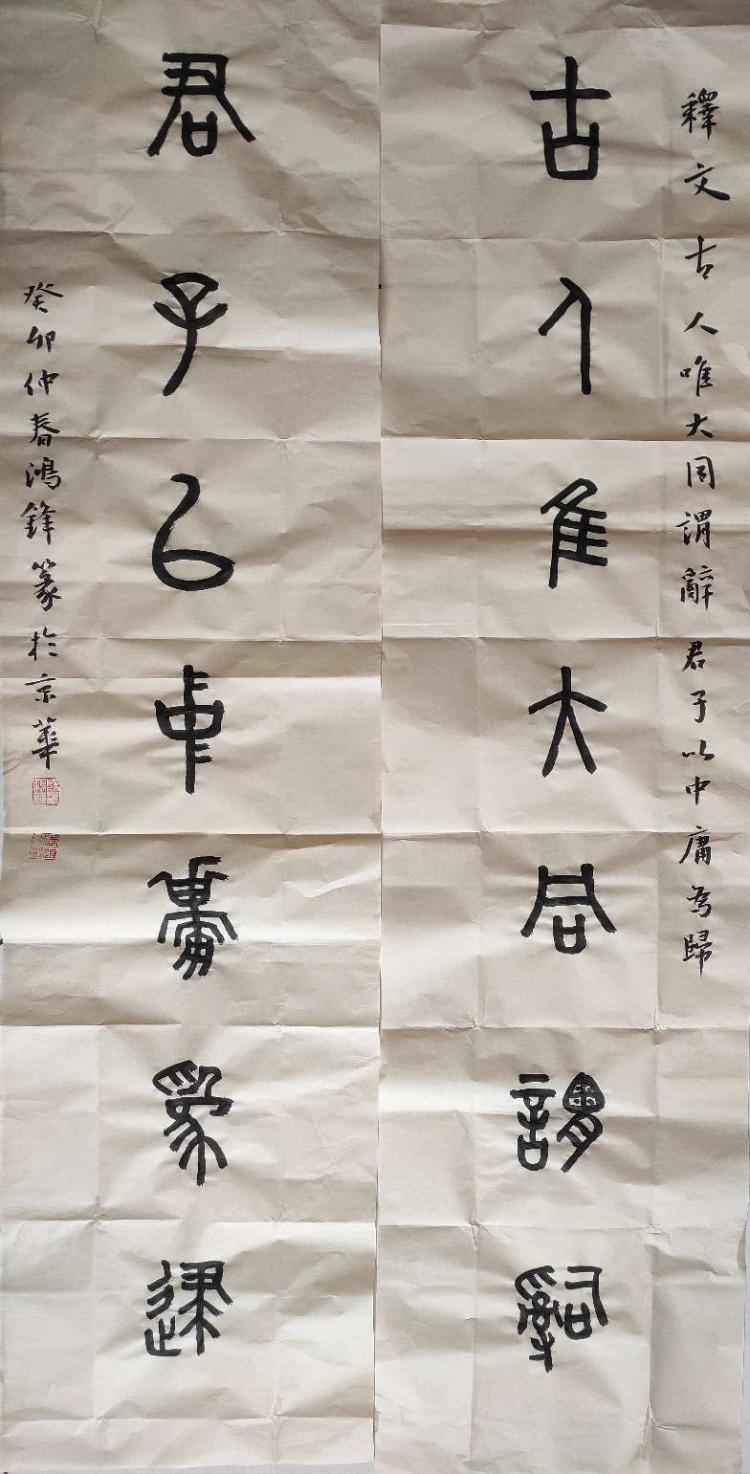 釋文 古人唯大同謂辭 君子以中庸為歸
古人隹大同謂辭
君子㠯中庸為歸
癸卯仲春鴻鋒篆於京華